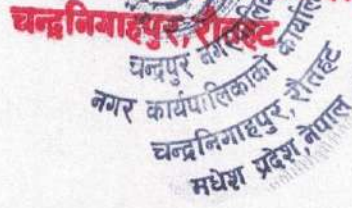 चन्द्रनिगाहपुर, रौतहट
चन्द्रपुर
नगर कार्यपालिकाको कार्यालय
चन्द्रनिगाहपुर, रौतहट
मधेश प्रदेश, नेपाल